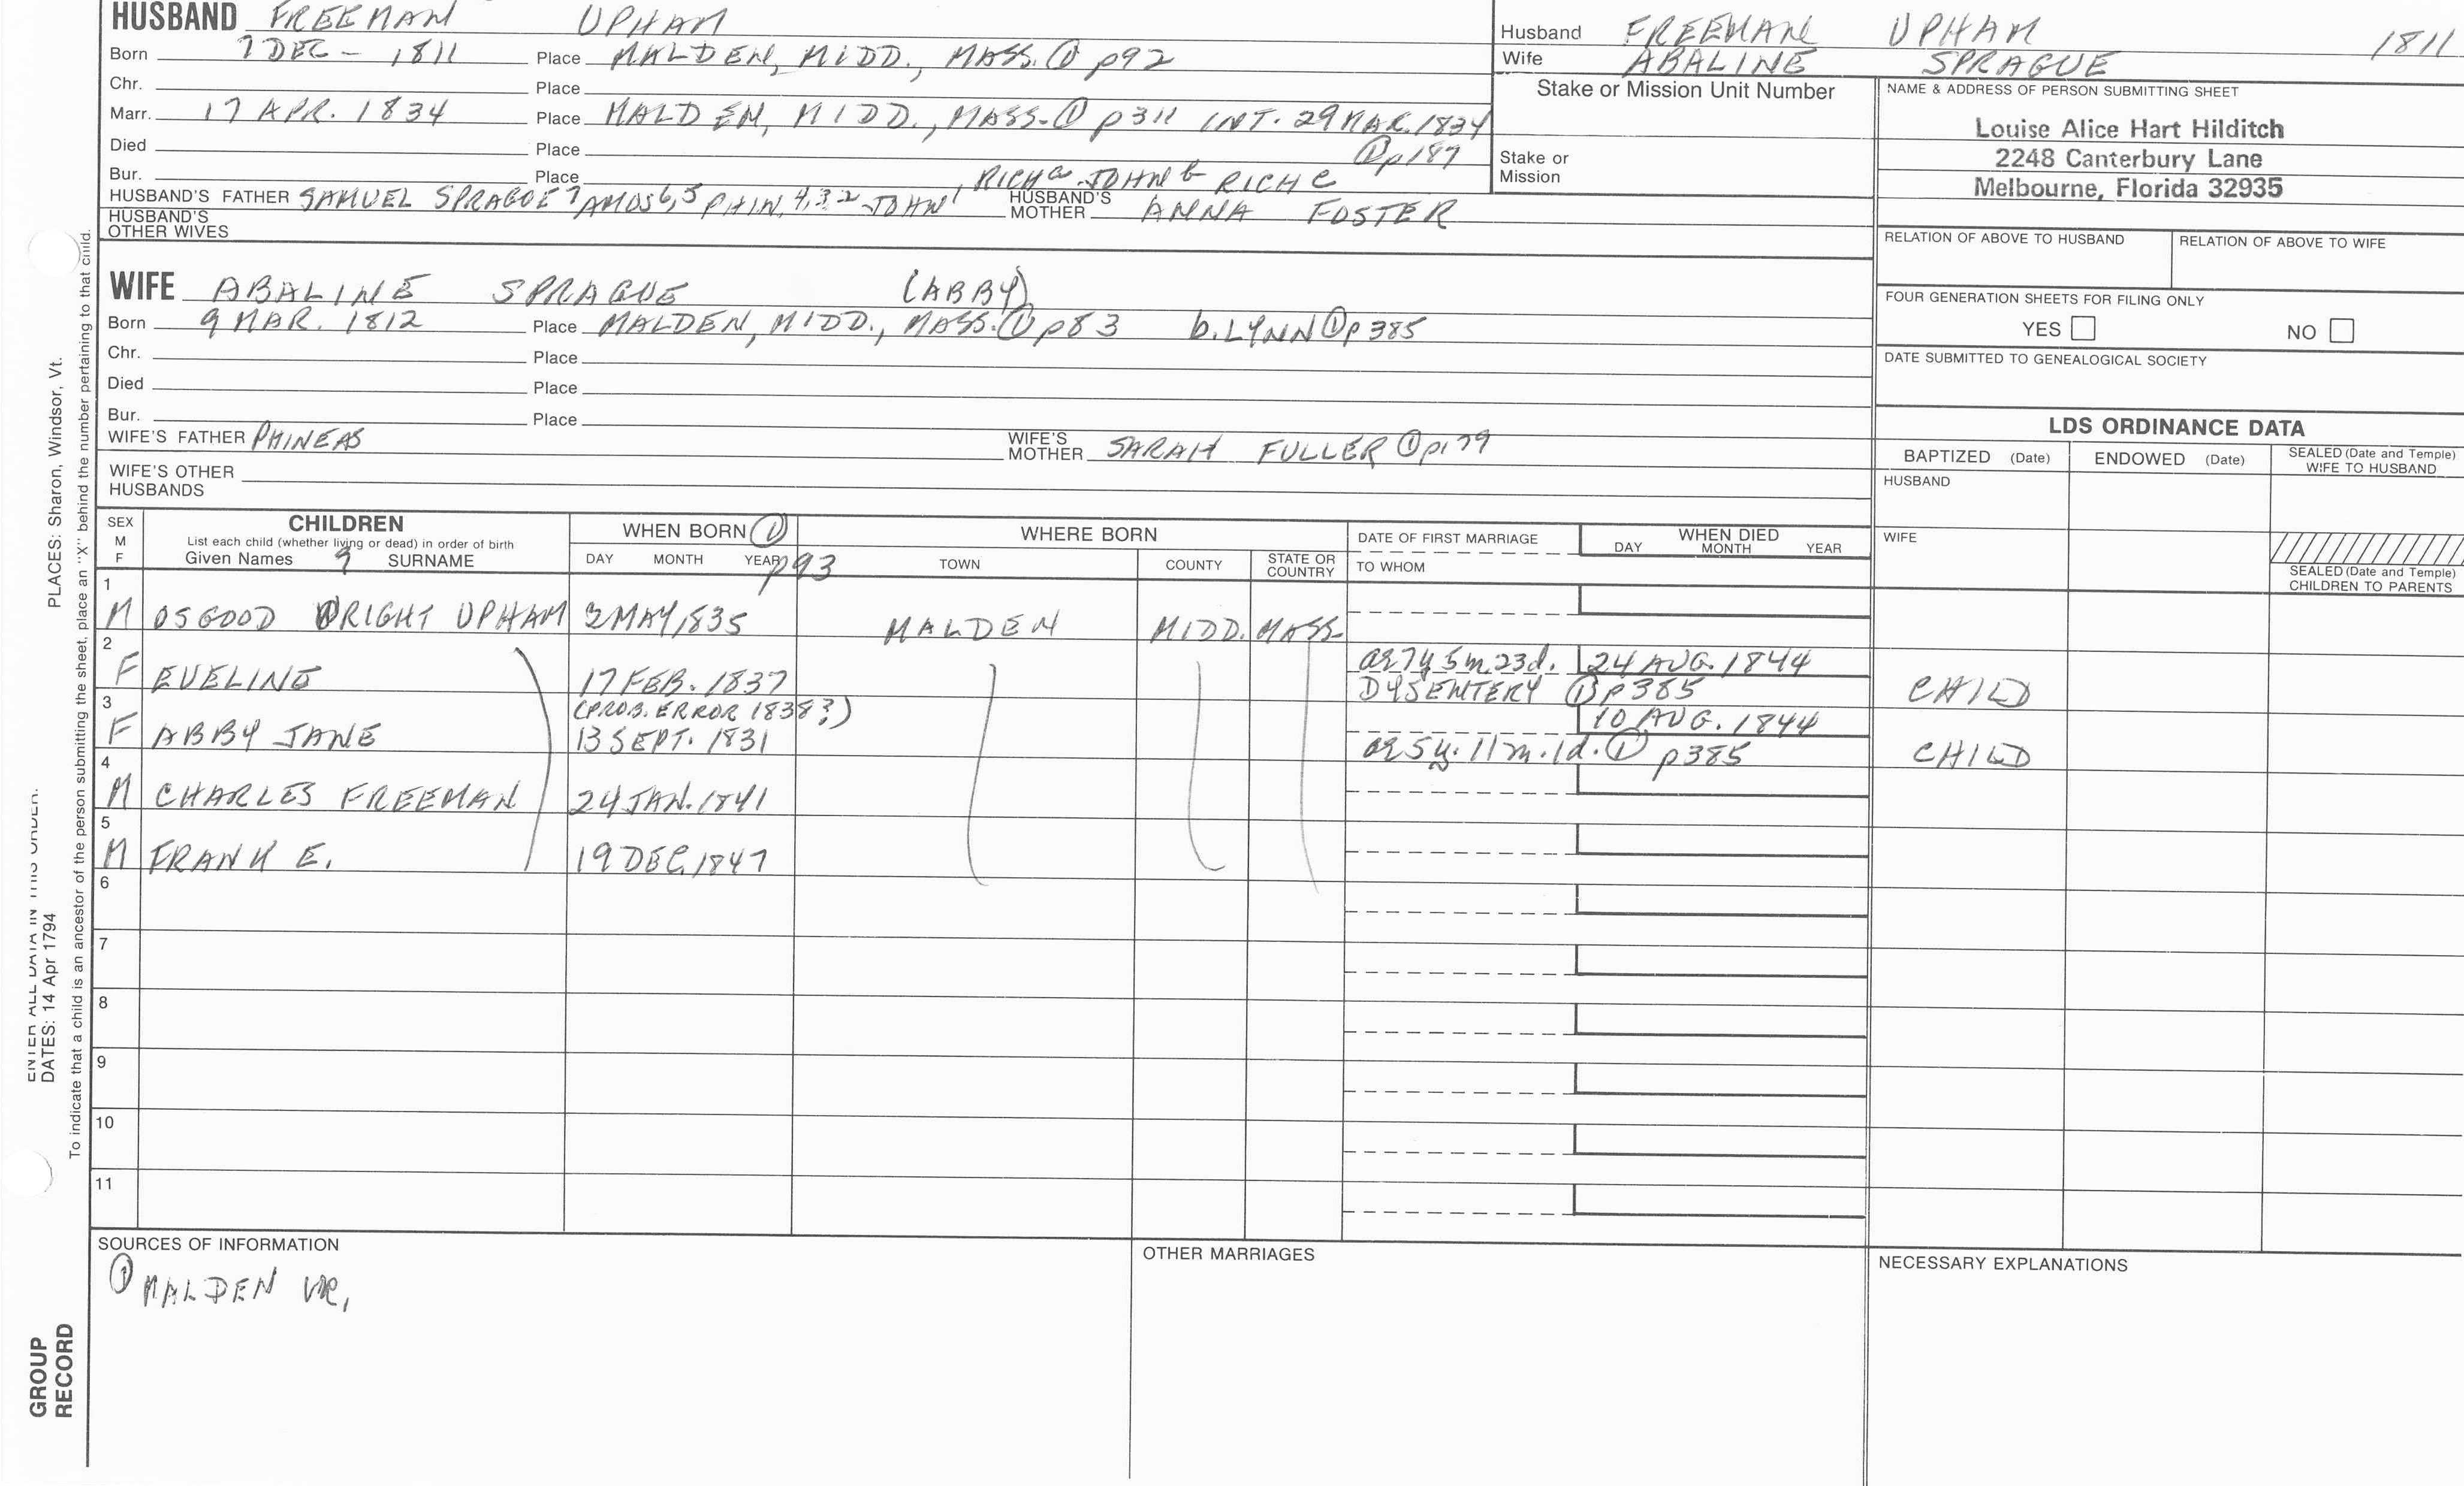 HUSBAND FREEMAN UPHAM
Born 7 DEC - 1811 Place MALDEN, MIDD., MASS. ① p92
Chr. Place
Marr. 17 APR. 1834 Place MALDEN, MIDD., MASS. ① p311 INT. 29 MAR. 1834
① p187
Died Place
Bur. Place
, RICH a - JOHN b RICH c
HUSBAND'S FATHER SAMUEL SPRAGUE 7 AMOS 6,5 PHIN. 4,3 2 - JOHN 1 HUSBAND'S MOTHER ANNA FOSTER
HUSBAND'S OTHER WIVES
Husband FREEMAN UPHAM 1811
Wife ABALINE SPRAGUE
Stake or Mission Unit Number
Stake or Mission
NAME & ADDRESS OF PERSON SUBMITTING SHEET
Louise Alice Hart Hilditch
2248 Canterbury Lane
Melbourne, Florida 32935
RELATION OF ABOVE TO HUSBAND RELATION OF ABOVE TO WIFE
FOUR GENERATION SHEETS FOR FILING ONLY
YES NO
DATE SUBMITTED TO GENEALOGICAL SOCIETY
WIFE ABALINE SPRAGUE (ABBY)
Born 9 MAR. 1812 Place MALDEN, MIDD., MASS. ① p83 b. LYNN ① p385
Chr. Place
Died Place
Bur. Place
WIFE'S FATHER PHINEAS WIFE'S MOTHER SARAH FULLER ① p179
WIFE'S OTHER HUSBANDS
LDS ORDINANCE DATA
BAPTIZED (Date) ENDOWED (Date) SEALED (Date and Temple) WIFE TO HUSBAND
HUSBAND
WIFE
SEALED (Date and Temple) CHILDREN TO PARENTS
SEX M F
CHILDREN
List each child (whether living or dead) in order of birth
Given Names 9 SURNAME
WHEN BORN ①
DAY MONTH YEAR p93
WHERE BORN
TOWN COUNTY STATE OR COUNTRY
DATE OF FIRST MARRIAGE
TO WHOM
WHEN DIED
DAY MONTH YEAR
1
M OSGOOD WRIGHT UPHAM 2 MAY 1835 MALDEN MIDD. MASS.
2
ae 7y 5m. 23d. 24 AUG. 1844
F EVELINE 17 FEB. 1837 DYSENTERY ① p385 CHILD
3
(PROB. ERROR 1838?) 10 AUG. 1844
F ABBY JANE 13 SEPT. 1831 ae 5y. 11m. 1d. ① p385 CHILD
4
M CHARLES FREEMAN 24 JAN. 1841
5
M FRANK E. 19 DEC. 1847
6
7
8
9
10
11
SOURCES OF INFORMATION
① MALDEN VR,
OTHER MARRIAGES
NECESSARY EXPLANATIONS
PLACES: Sharon, Windsor, Vt.
To indicate that a child is an ancestor of the person submitting the sheet, place an "X" behind the number pertaining to that child.
ENTER ALL DATA IN THIS ORDER:
DATES: 14 Apr 1794
GROUP
RECORD